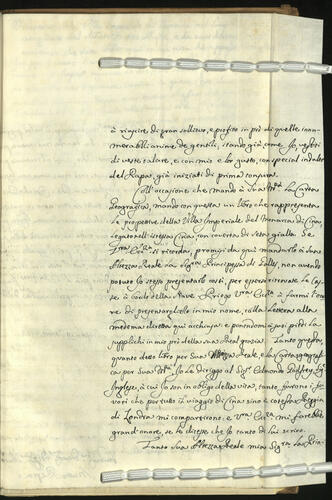 à riuscire di gran sollievo, e profitto in più di quelle innu-
merabili anime de gentili, stando già come Io, vestiti
di veste talare, e con mio e lor gusto, con special indulto
del Papa, già iniziati di prima tonsura.
All'occasione che mando a Sua M.tà la Carta
Geografica, mando con questa un libro che rappresenta
le prospetive della Villa Imperiale del Monarca di Cina,
legato nell'istessa Cina con coverta di seta gialla. Se
V.ra Ecc.za si ricorda, promisi da quì mandarlo à Sua
Altezza Reale la Sig.ra Principessa di Galles, non avendo
potuto Io stesso presentarlo costì, per essere ritenute le Cas-
se à bordo della Nave. Priego V.ra Ecc.za à farmi l'ono-
re di presentarglielo in mio nome, colla lettera alla
medesima diretta quì acchiusa; e ponendomi a suoi piedi la
supplichi in mio prò della sua Real grazia. Tanto questa
quanto detto libro per Sua Altezza Reale, e la Carta geografi-
ca per Sua M.tà Io la diriggo al Sig.r Edmondo
Inglese, à cui Io son in obligo della vita, tanto furono i fa-
vori che per tutto il viaggio di Cina sino a cotesta Reggia
di Londra mi compartirono, e V.ra Ecc.za mi farebbe
grand'onore, se lo dicesse che Io tanto di lui scrivo.
Tanto Sua Altezza Reale mia Sig.ra la Prin-